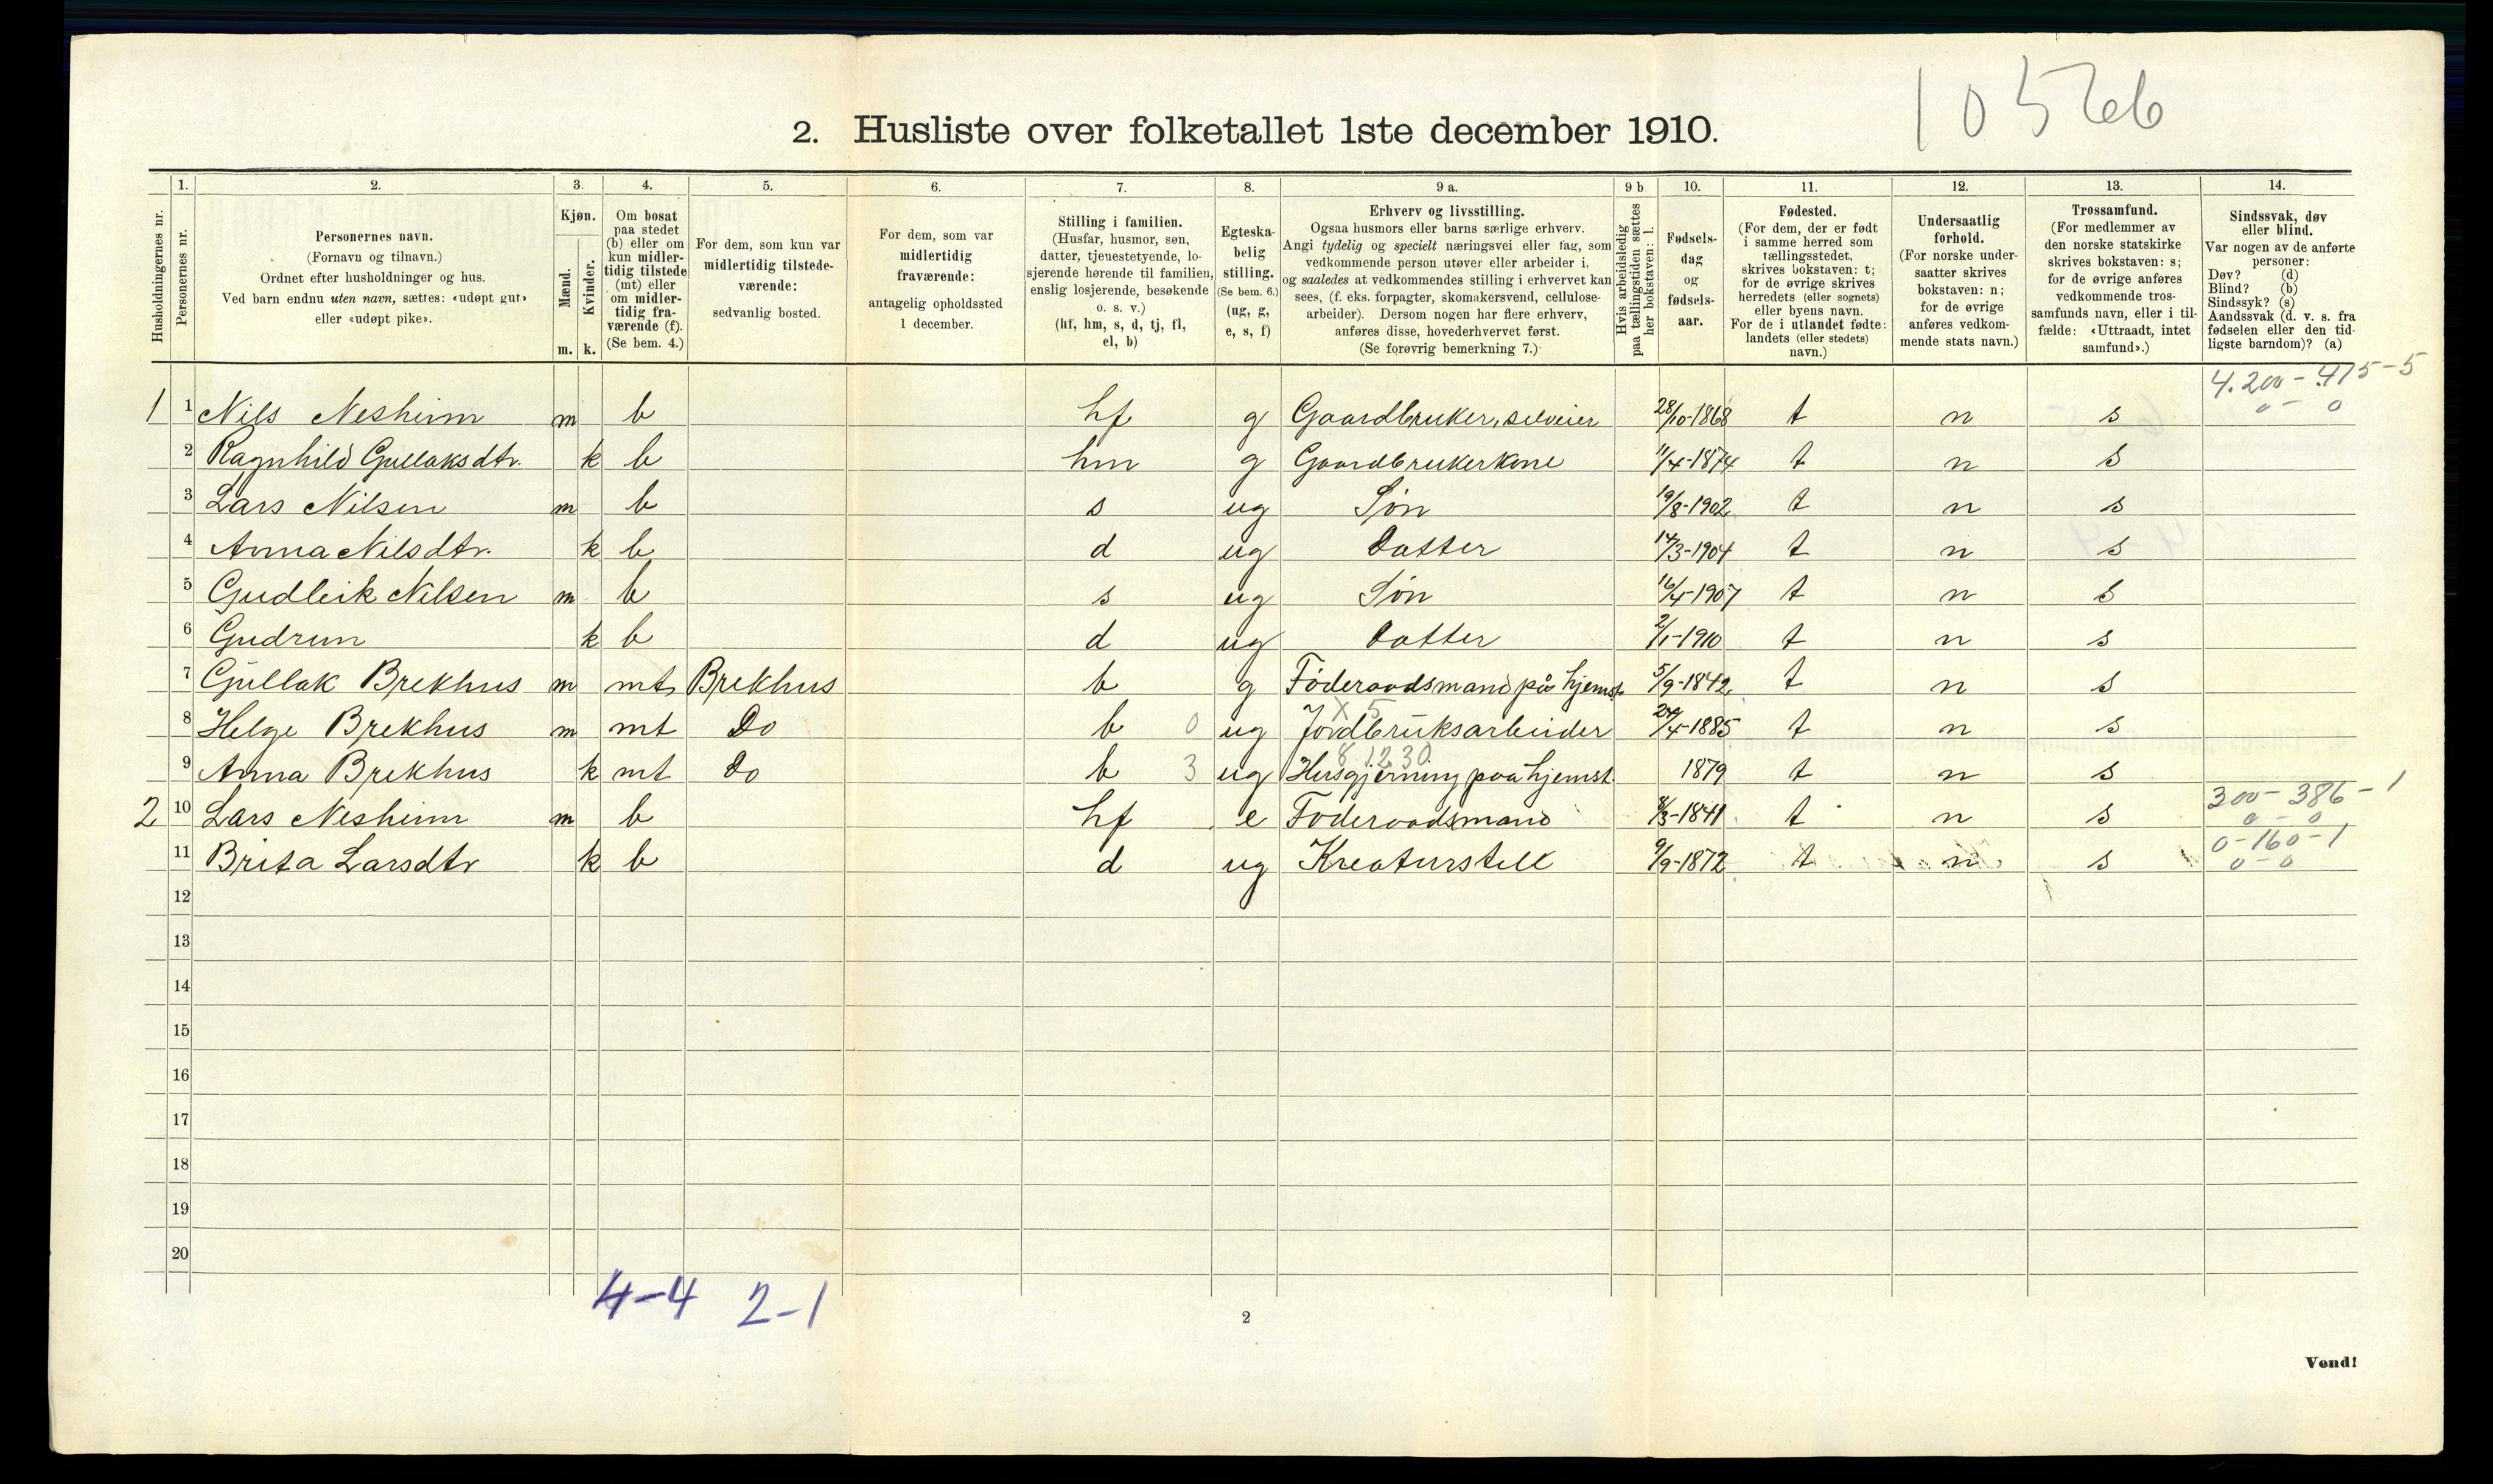 10566
2. Husliste over folketallet 1ste december 1910.
Husholdningernes nr.
1.
Personernes nr.
2.
Personernes navn.
(Fornavn og tilnavn.)
Ordnet efter husholdninger og hus.
Ved barn endnu uten navn, sættes: «udøpt gut»
eller «udøpt pike».
3.
Kjøn.
Mænd.
Kvinder.
m. k.
4.
Om bosat
paa stedet
(b) eller om
kun midler-
tidig tilstede
(mt) eller
om midler-
tidig fra-
værende (f).
(Se bem. 4.)
5.
For dem, som kun var
midlertidig tilstede-
værende:
sedvanlig bosted.
6.
For dem, som var
midlertidig
fraværende:
antagelig opholdssted
1 december.
7.
Stilling i familien.
(Husfar, husmor, søn,
datter, tjenestetyende, lo-
sjerende hørende til familien,
enslig losjerende, besøkende
o. s. v.)
(hf, hm, s, d, tj, fl,
el, b)
8.
Egteska-
belig
stilling.
(Se bem. 6.)
(ug, g,
e, s, f)
9 a.
Erhverv og livsstilling.
Ogsaa husmors eller barns særlige erhverv.
Angi tydelig og specielt næringsvei eller fag, som
vedkommende person utøver eller arbeider i,
og saaledes at vedkommendes stilling i erhvervet kan
sees, (f. eks. forpagter, skomakersvend, cellulose-
arbeider). Dersom nogen har flere erhverv,
anføres disse, hovederhvervet først.
(Se forøvrig bemerkning 7.)
9 b
Hvis arbeidsledig
paa tællingstiden sættes
her bokstaven: l.
10.
Fødsels-
dag
og
fødsels-
aar.
11.
Fødested.
(For dem, der er født
i samme herred som
tællingsstedet,
skrives bokstaven: t;
for de øvrige skrives
herredets (eller sognets)
eller byens navn.
For de i utlandet fødte:
landets (eller stedets)
navn.)
12.
Undersaatlig
forhold.
(For norske under-
saatter skrives
bokstaven: n;
for de øvrige
anføres vedkom-
mende stats navn.)
13.
Trossamfund.
(For medlemmer av
den norske statskirke
skrives bokstaven: s;
for de øvrige anføres
vedkommende tros-
samfunds navn, eller i til-
fælde: «Uttraadt, intet
samfund».)
14.
Sindssvak, døv
eller blind.
Var nogen av de anførte
personer:
Døv? (d)
Blind? (b)
Sindssyk? (s)
Aandssvak (d. v. s. fra
fødselen eller den tid-
ligste barndom)? (a)
4.200-475-5
0-0
1 1 Nils Nesheim m b hf g Gaardbruker, selveier 28/10-1868 t n s
2 Ragnhild Gullaksdtr. k b hm g Gaardbrukerkone 11/4-1874 t n s
3 Lars Nilsen m b s ug Søn 19/8-1902 t n s
4 Anna Nilsdtr. k b d ug Datter 14/3-1904 t n s
5 Gudleik Nilsen m b s ug Søn 16/4-1907 t n s
6 Gudrun k b d ug Datter 2/1-1910 t n s
7 Gullak Brekhus m mt Brekhus b g Føderaadsmand på hjemst. 5/9-1842 t n s
X 5
8 Helge Brekhus m mt Do b 0 ug Jordbruksarbeider 24/4-1885 t n s
8.12.30.
9 Anna Brekhus k mt Do b 3 ug Husgjerning paa hjemst. 1879 t n s
300-386-1
0-0
2 10 Lars Nesheim m b hf e Føderaadsmand 8/3-1841 t n s
0-160-1
0-0
11 Brita Larsdtr k b d ug Kreaturstell 9/9-1872 t n s
12
13
14
15
16
17
18
19
20
4-4 2-1
2
Vend!